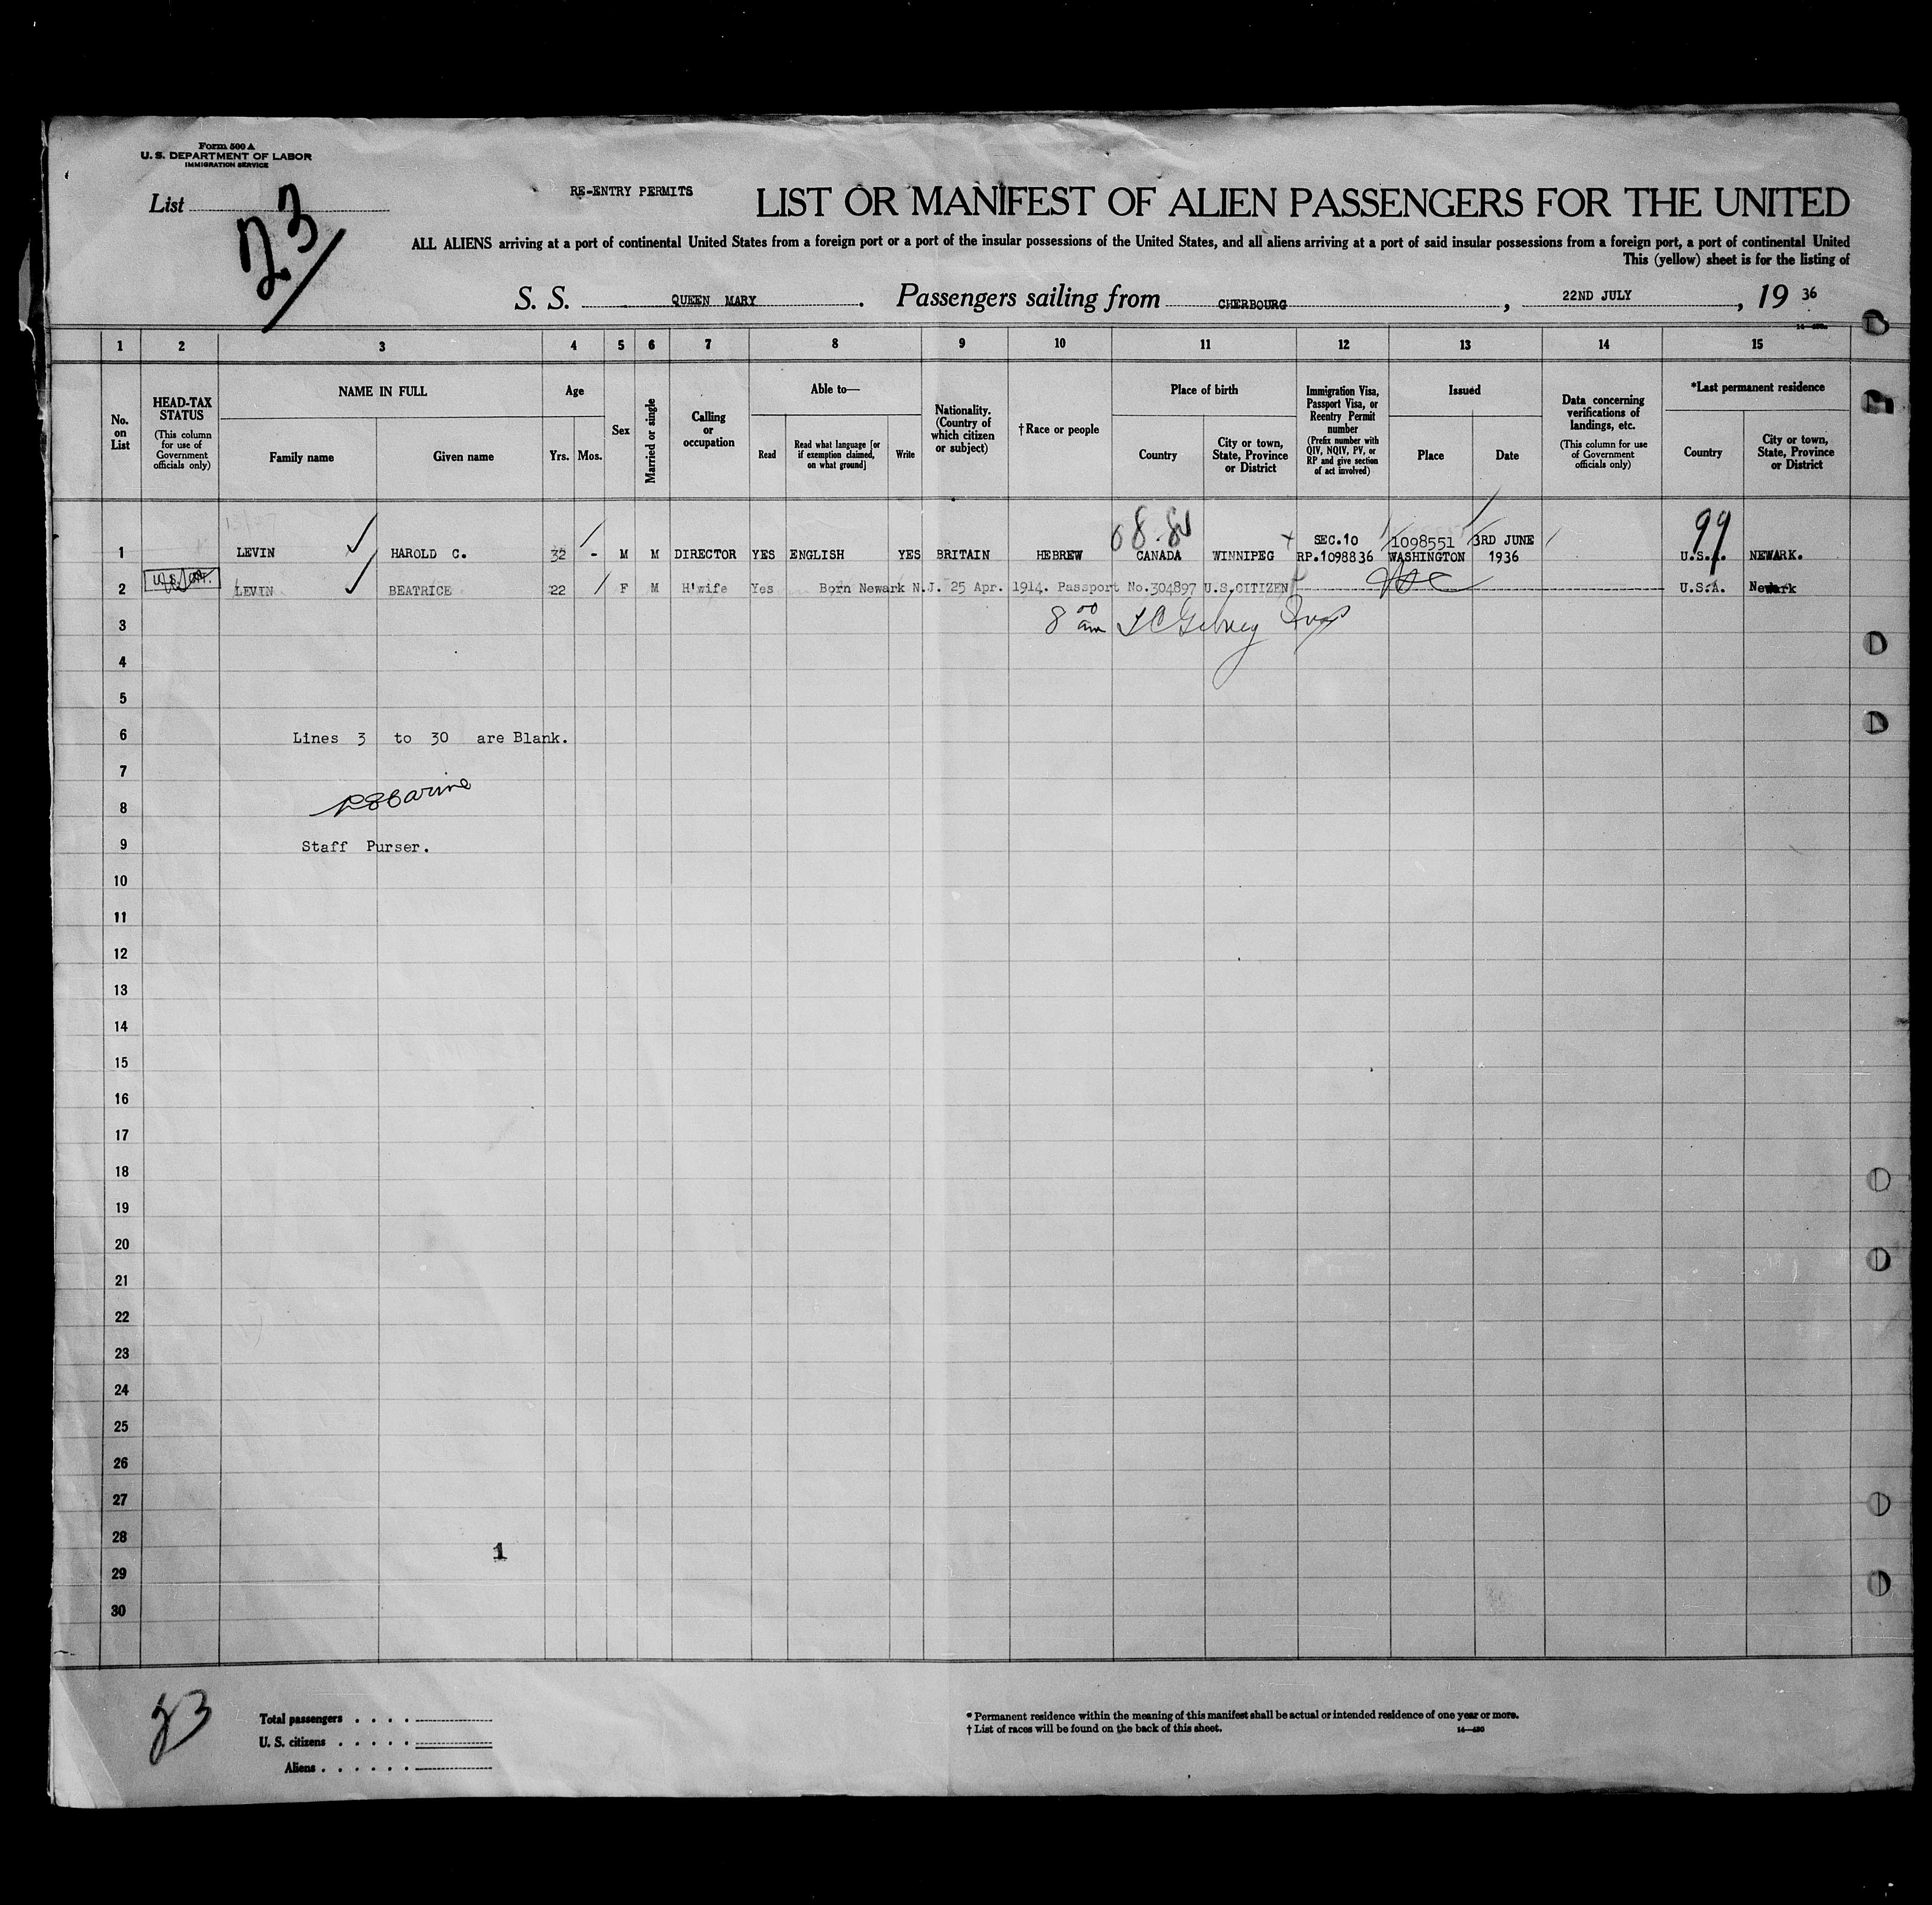 Form 500 A
U. S. DEPARTMENT OF LABOR
IMMIGRATION SERVICE
List 23
RE-ENTRY PERMITS
LIST OR MANIFEST OF ALIEN PASSENGERS FOR THE UNITED
ALL ALIENS arriving at a port of continental United States from a foreign port or a port of the insular possessions of the United States, and all aliens arriving at a port of said insular possessions from a foreign port, a port of continental United
This (yellow) sheet is for the listing of
S. S. QUEEN MARY. Passengers sailing from CHERBOURG, 22ND JULY, 19 36
1 2 3 4 5 6 7 8 9 10 11 12 13 14 15
No. on List
HEAD-TAX STATUS
(This column for use of Government officials only)
NAME IN FULL
Family name
Given name
Age
Yrs. Mos.
Sex
Married or single
Calling or occupation
Able to—
Read
Read what language [or if exemption claimed, on what ground]
Write
Nationality. (Country of which citizen or subject)
†Race or people
Place of birth
Country
City or town, State, Province or District
Immigration Visa, Passport Visa, or Reentry Permit number
(Prefix number with QIV, NQIV, PV, or RP and give section of act involved)
Issued
Place
Date
Data concerning verifications of landings, etc.
(This column for use of Government officials only)
*Last permanent residence
Country
City or town, State, Province or District
99
SEC.10 1098551 3RD JUNE
1 LEVIN HAROLD C. 32 - M M DIRECTOR YES ENGLISH YES BRITAIN HEBREW CANADA WINNIPEG RP.1098836 WASHINGTON 1936 U.S.A. NEWARK.
2 LEVIN BEATRICE 22 F M H'wife Yes Born Newark N.J. 25 Apr. 1914. Passport No.304897 U.S.CITIZEN U.S.A. Newark
3 8 00 am
4
5
6 Lines 3 to 30 are Blank.
7
8
9 Staff Purser.
10
11
12
13
14
15
16
17
18
19
20
21
22
23
24
25
26
27
28
1
29
30
23
Total passengers . . . .
U. S. citizens . . . . .
Aliens . . . . . .
* Permanent residence within the meaning of this manifest shall be actual or intended residence of one year or more.
† List of races will be found on the back of this sheet.
14—430